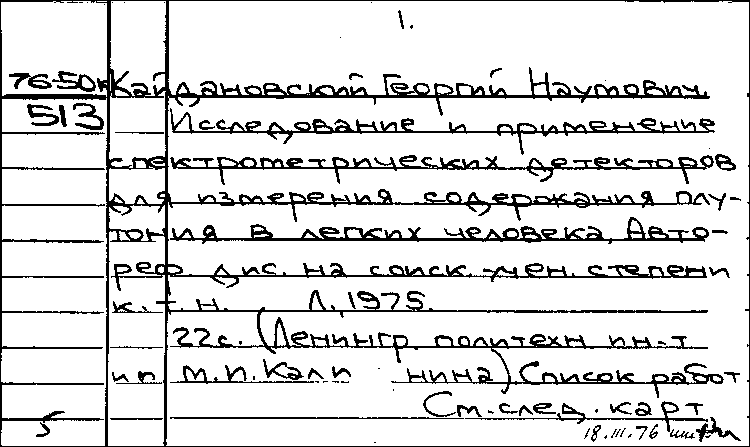 1.
76-50к Кайдановский, Георгий Наумович.
513 Исследование и применение
спектрометрических детекторов
для измерения содержания плу-
тония в легких человека. Авто-
реф. дис. на соиск. учен. степени
к. т. н. Л., 1975.
22с. (Ленингр. политехн. ин-т
им. М.И. Кали нина). Список работ
См. след. карт.
5 18.III.76